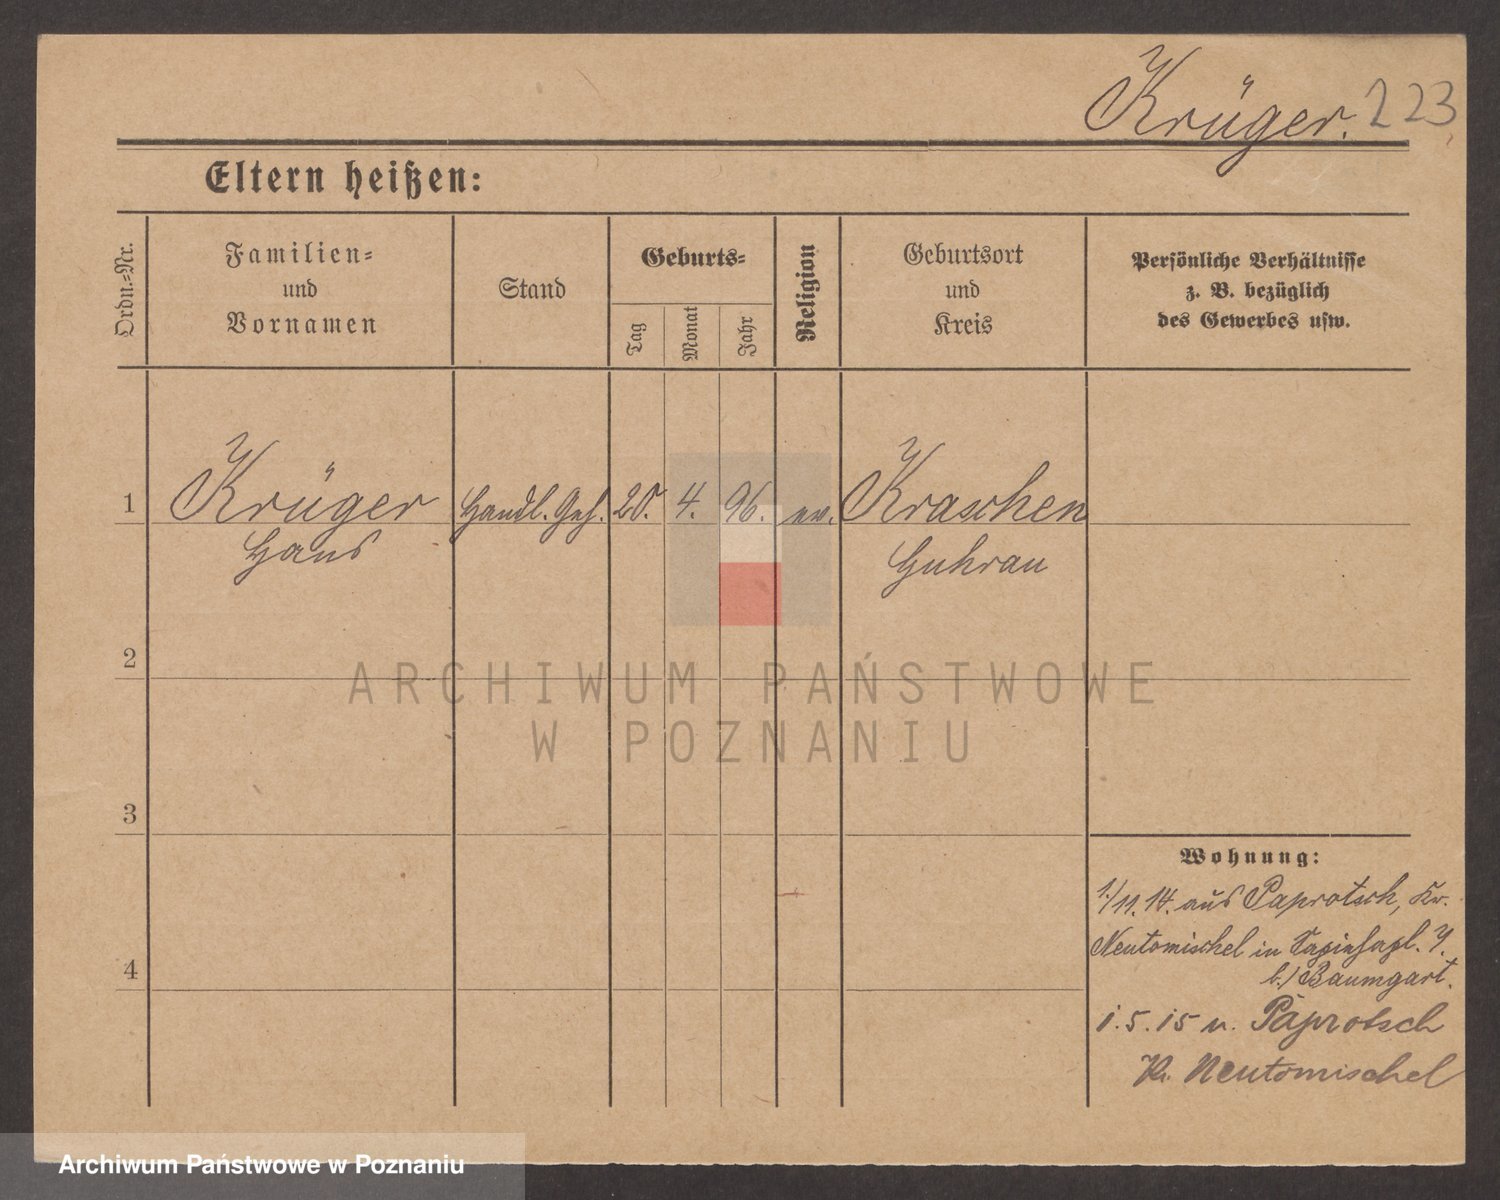 Krüger. 223
Eltern heißen:
Ordn.=Nr.
Familien=
und
Vornamen
Stand
Geburts=
Tag
Monat
Jahr
Religion
Geburtsort
und
Kreis
Persönliche Verhältnisse
z. B. bezüglich
des Gewerbes usw.
1 Krüger Handl. Geh. 20. 4. 96. ev. Kraschen
Hans Guhrau
2
ARCHIWUM PAŃSTWOWE
W POZNANIU
3
Wohnung:
1./11. 14. aus Paprotsch, Kr.
Neutomischel in
4 b./ Baumgart.
1. 5. 15 n. Paprotsch
Kr. Neutomischel
Archiwum Państwowe w Poznaniu